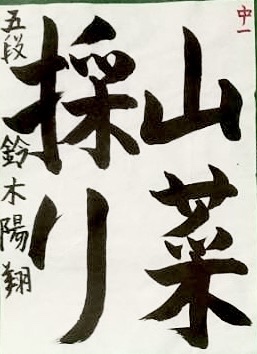 中一
山菜
採り
五段 鈴木陽翔